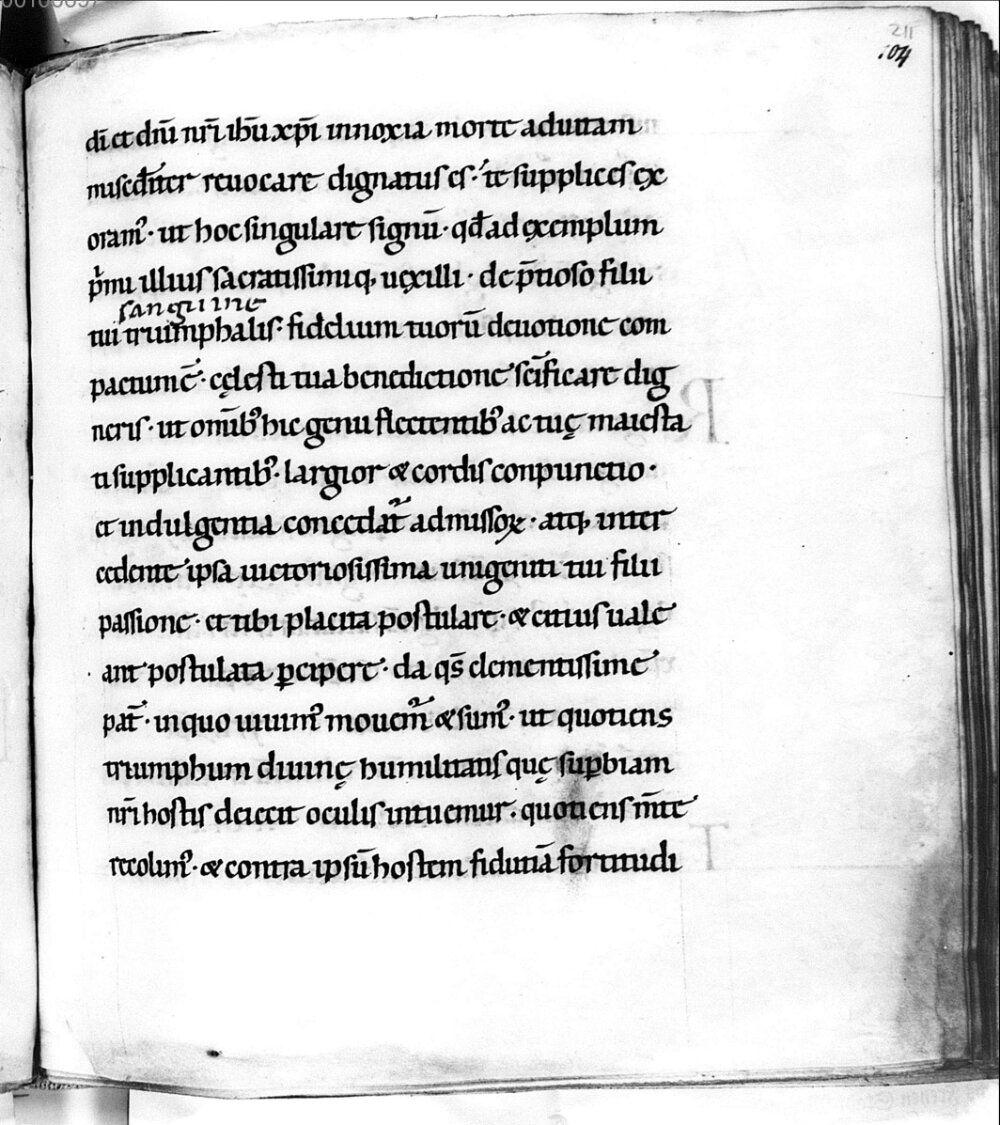 211
104
dī et dn̄i nr̄i ih̄u xp̄i innoxia morte ad uitam
miscd̄iter reuocare dignatus es· te supplices ex
oram᷒· ut hoc singulare signū· qd̄ ad exemplum
pͥmi illius sacratissimiq; uexilli· de p̄tioso filii
sanguine
tui triumphalis· fidelium tuorū deuotione com
pactum ē· cęlesti tua benedictione sc̄ificare dig
neris· ut om̄ib᷒ hic genu flectentib᷒ ac tuę maiesta
ti supplicantib᷒· largior & cordis conpunctio·
et indulgentia concedat᷑ admissoꝝ· atq; inter
cedente ipsa uictoriosissima unigeniti tui filii
passione· et tibi placita postulare· & citius uale
ant postulata ꝑcipere· da qs̄ clementissime
pat̄· in quo uiuim᷒ mouem᷑ & sum᷒· ut quotiens
triumphum diuinę humilitatis quę supbiam
nr̄i hostis deiecit oculis intuemur· quotiens m̄te
recolim᷒· & contra ipsū hostem fidutiā fortitudi